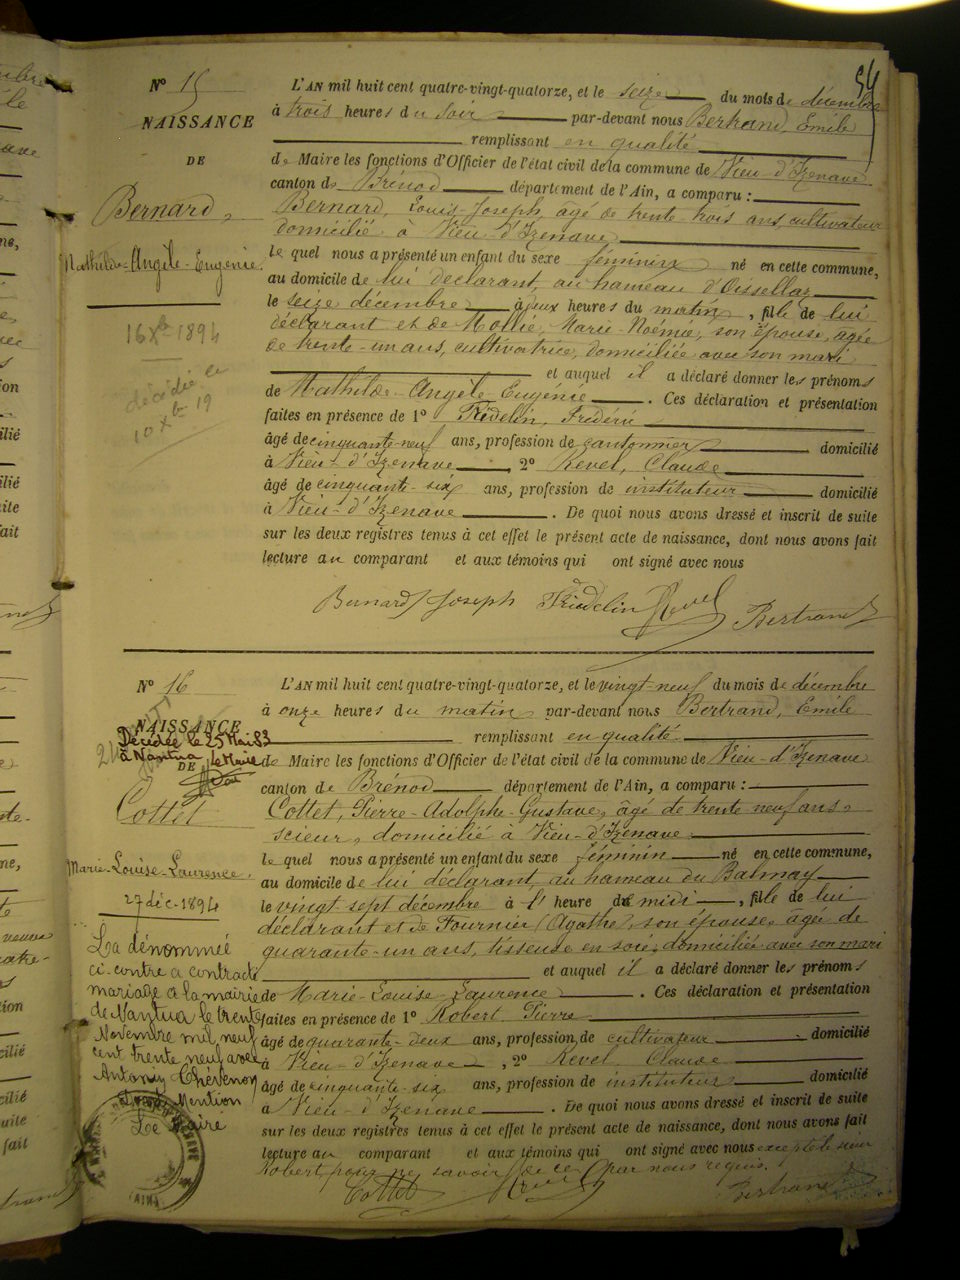 54
Nº 15
NAISSANCE
DE
Bernard,
Mathilde-Angèle-Eugénie.
16 Xbre 1894
décédée le
10 Xbre 19
L'AN mil huit cent quatre-vingt-quatorze, et le seize du mois de décembre
à trois heures du soir par-devant nous Bertrand, Emile
remplissant en qualité
de Maire les fonctions d'Officier de l'état civil de la commune de Vieu-d'Izenave
canton de Brénod département de l'Ain, a comparu :
Bernard, Louis-Joseph, âgé de trente-trois ans, cultivateur
domicilié à Vieu-d'Izenave
le quel nous a présenté un enfant du sexe féminin né en cette commune,
au domicile de lui déclarant, au hameau d'Oisellaz
le seize décembre à deux heures du matin, fille de lui
déclarant et de Mollie, Marie-Noémie, son épouse, agée
de trente-un ans, cultivatrice, domiciliée avec son mari
et auquel il a déclaré donner les prénoms
de Mathilde-Angèle Eugénie. Ces déclaration et présentation
faites en présence de 1º Fridelin, Frédéric
âgé de cinquante-neuf ans, profession de cantonnier domicilié
à Vieu-d'Izenave, 2º Revel, Claude
âgé de cinquante-six ans, profession de instituteur domicilié
à Vieu-d'Izenave. De quoi nous avons dressé et inscrit de suite
sur les deux registres tenus à cet effet le présent acte de naissance, dont nous avons fait
lecture au comparant et aux témoins qui ont signé avec nous
Bernard Joseph Fridelin Revel Bertrand
Nº 16
NAISSANCE
Décédée le 25 Mai 83
à Nantua Le Maire
DE
Cottet
Marie-Louise-Laurence.
27 déc-1894
La dénommée
ci-contre a contracté
mariage à la mairie
de Nantua le trente
Novembre mil neuf
cent trente neuf avec
Antony Thévenon
Mention
Le Maire
L'AN mil huit cent quatre-vingt-quatorze, et le vingt-neuf du mois de décembre
à onze heures du matin par-devant nous Bertrand, Emile
remplissant en qualité
de Maire les fonctions d'Officier de l'état civil de la commune de Vieu-d'Izenave
canton de Brénod département de l'Ain, a comparu :
Cottet, Pierre-Adolphe-Gustave, âgé de trente neuf ans,
scieur, domicilié à Vieu-d'Izenave
le quel nous a présenté un enfant du sexe féminin né en cette commune,
au domicile de lui déclarant, au hameau du Balmay
le vingt sept décembre à l' heure de midi, fille de lui
déclarant et de Fournier (Agathe), son épouse, agée de
quarante-un ans, tisseuse en soie, domiciliée avec son mari
et auquel il a déclaré donner les prénoms
de Marie-Louise-Laurence. Ces déclaration et présentation
faites en présence de 1º Robert Pierre
âgé de quarante-deux ans, profession de cultivateur domicilié
à Vieu-d'Izenave, 2º Revel Claude
âgé de cinquante-six ans, profession de instituteur domicilié
à Vieu-d'Izenave. De quoi nous avons dressé et inscrit de suite
sur les deux registres tenus à cet effet le présent acte de naissance, dont nous avons fait
lecture au comparant et aux témoins qui ont signé avec nous excepté le sieur
Robert pour ne savoir de ce par nous requis.
Cottet Revel Bertrand